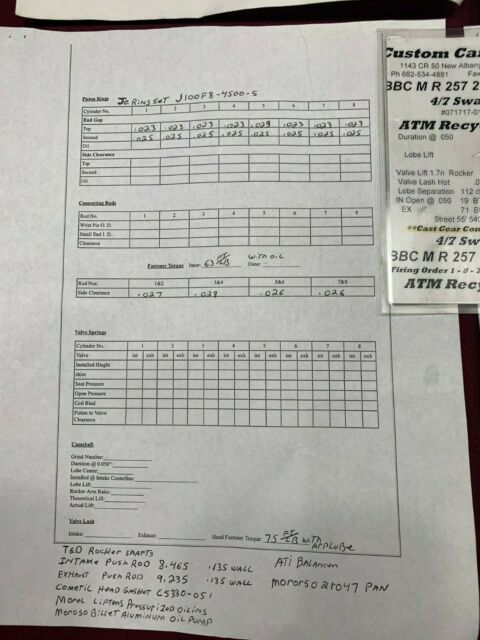 Piston Rings JE Ring Set J100F8-4500-5
Cylinder No. 1 2 3 4 5 6 7 8
End Gap
Top .023 .023 .023 .023 .023 .023 .023 .023
Second .025 .025 .025 .025 .025 .025 .025 .025
Oil
Side Clearance
Top
Second
Oil
Connecting Rods
Rod No. 1 2 3 4 5 6 7 8
Wrist Pin O. D.
Small End I. D.
Clearance
Fastener Torque Inner: 63 FT/LB Outer: with oil
Rod Nos: 1&2 3&4 5&6 7&8
Side Clearance .027 .028 .026 .026
Valve Springs
Cylinder No. 1 2 3 4 5 6 7 8
Valve int exh int exh int exh int exh int exh int exh int exh int exh
Installed Hieght
shim
Seat Pressure
Open Pressure
Coil Bind
Piston to Valve
Clearance
Camshaft
Grind Number:
Duration @ 0.050":
Lobe Center:
Installed @ Intake Centerline:
Lobe Lift:
Rocker Arm Ratio:
Theoretical Lift:
Actual Lift:
Valve Lash
Intake: Exhaust: Head Fastener Torque: 75 FT/LB with
ARP Lube
T&D Rocker shafts
INTAKE Push Rod 8.465 .135 WALL
EXHAUST Push Rod 9.235 .135 WALL
Cometic Head Gasket C5330-051
Morel Lifters Pressurized oiling
Moroso Billet Aluminum Oil Pump
ATI Balancer
Moroso 21047 PAN
Custom Ca
1143 CR 50 New Albany
Ph 662-534-4881 Fax
BBC M R 257 2
4/7 Swa
#071717-0
ATM Recy
Duration @ .050
Lobe Lift
Valve Lift 1.7n Rocker
Valve Lash Hot .0
Lobe Separation 112 d
IN Open @ .050 19 BT
EX 71 B
Street 55' 540
**Cast Gear Con
4/7 Sw
BBC M R 257
Firing Order 1 - 8 - 7
ATM Recy